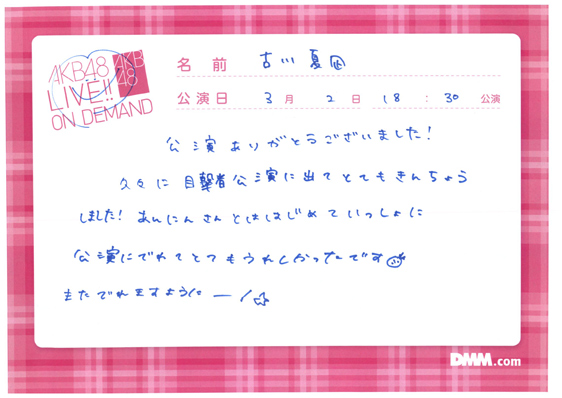 AKB48
LIVE!!
ON DEMAND
AKB
48
名前 古川夏凪
公演日 3月2日 18:30公演
公演ありがとうございました!
久々に目撃者公演に出てとてもきんちょう
しました!あんにんさんとははじめていっしょに
公演にでれてとてもうれしかったです
またでれますようにーー!☆
DMM.com